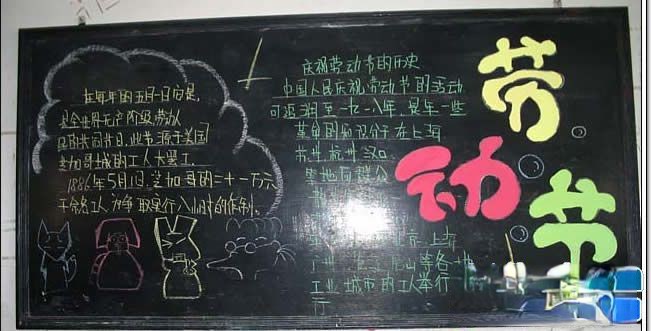 在每年的五月一日向是,
是全世界无产阶级,劳动人
民的共同节日,此节源于美国
芝加哥城的工人大罢工,
1886年5月1日,芝加哥的二十一万六
千余名工人为争取实行八小时的作制,
庆祝劳动节的历史
中国人民庆祝劳动节的活动
可追溯至一九一八年,是年一些
革命的知识分子在上海
苏州,杭州,汉口
地向群众
北京,上海
广 唐山等各地
工业城市的工人举行
行
劳
动
节